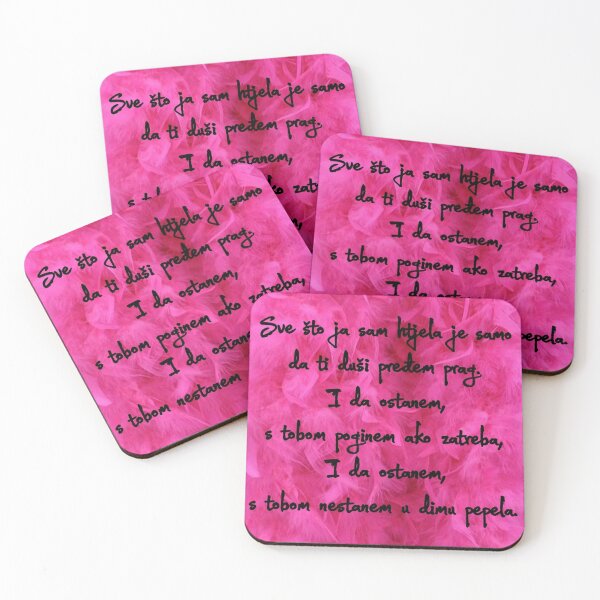 Sve što ja sam htjela je samo
da ti duši pređem prag.
I da ostanem,
Sve što ja sam htjela je samo
da ti duši pređem prag.
I da ostanem,
s tobom poginem ako zatreba,
pepela.
Sve što ja sam htjela je samo
da ti duši pređem prag.
I da ostanem,
s tobom poginem ako zatreba,
I da ostane
s tobom nestanem
Sve što ja sam htjela je samo
da ti duši pređem prag.
I da ostanem,
s tobom poginem ako zatreba,
I da ostanem,
s tobom nestanem u dimu pepela.